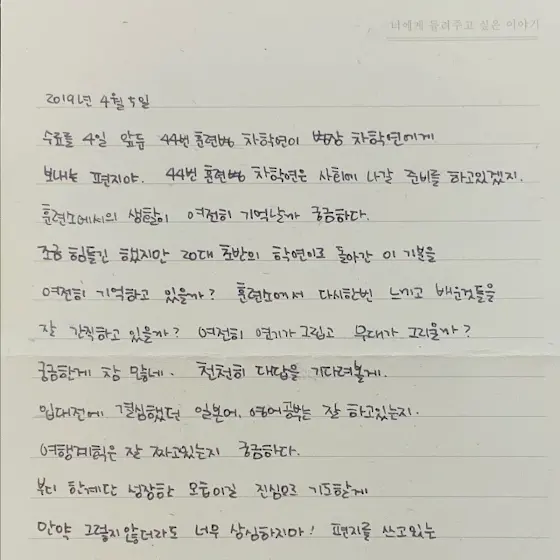 너에게 들려주고 싶은 이야기
2019년 4월 5일
수료를 4일 앞둔 44번 훈련병 차학연이 병장 차학연에게
보내는 편지야. 44번 훈련병 차학연은 사회에 나갈 준비를 하고있겠지.
훈련소에서의 생활이 여전히 기억날까 궁금하다.
조금 힘들긴 했지만 20대 초반의 학연이로 돌아간 이 기분을
여전히 기억하고 있을까? 훈련소에서 다시한번 느끼고 배운것들을
잘 간직하고 있을까? 여전히 연기가 그립고 무대가 그리울까?
궁금한게 참 많네. 천천히 대답을 기다려볼게.
입대전에 결심했던 일본어, 영어공부는 잘 하고있는지.
여행계획은 잘 짜고있는지 궁금하다.
부디 한계단 성장한 모습이길 진심으로 기도할게
만약 그렇지 않더라도 너무 상심하지마! 편지를 쓰고있는